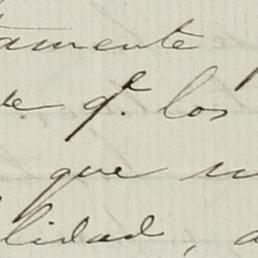 tamente
qe. los
que
lidad, a